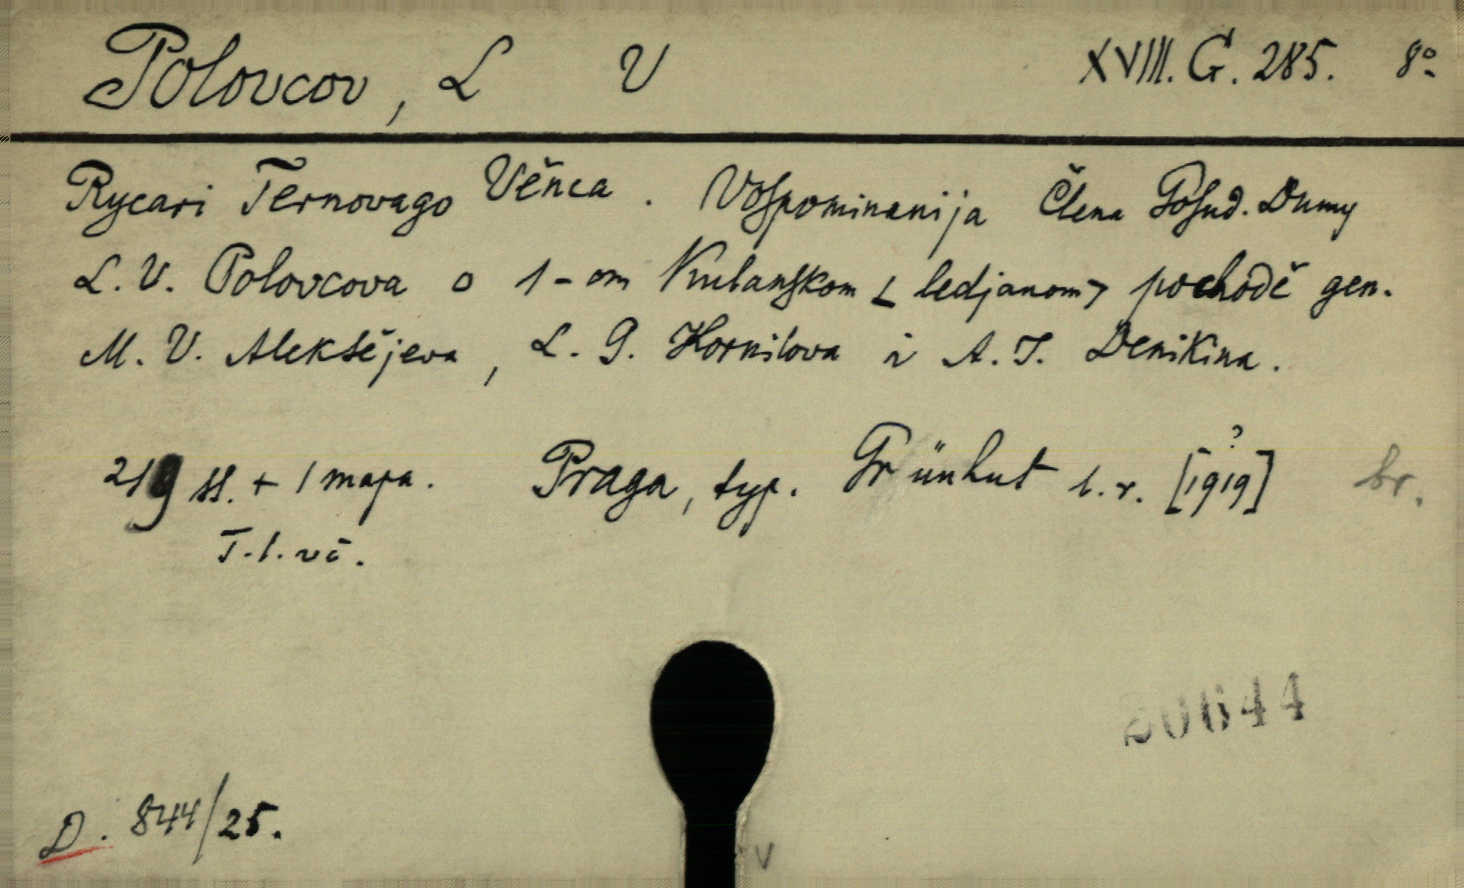 Polovcov, L V XVIII. G. 285. 8°
Rycari Ternovago Věnca. Vospominanija Člena Gosud. Dumy
L. V. Polovcova o 1-om Kubanskom <ledjanom> pochodě gen.
M. V. Aleksějeva, L. G. Kornilova i A. I. Denikina.
219 ss. + 1 mapa. Praga, typ. Grünhut b. r. [1919?] br.
T. l. vč.
20644
D. 844/25.
V